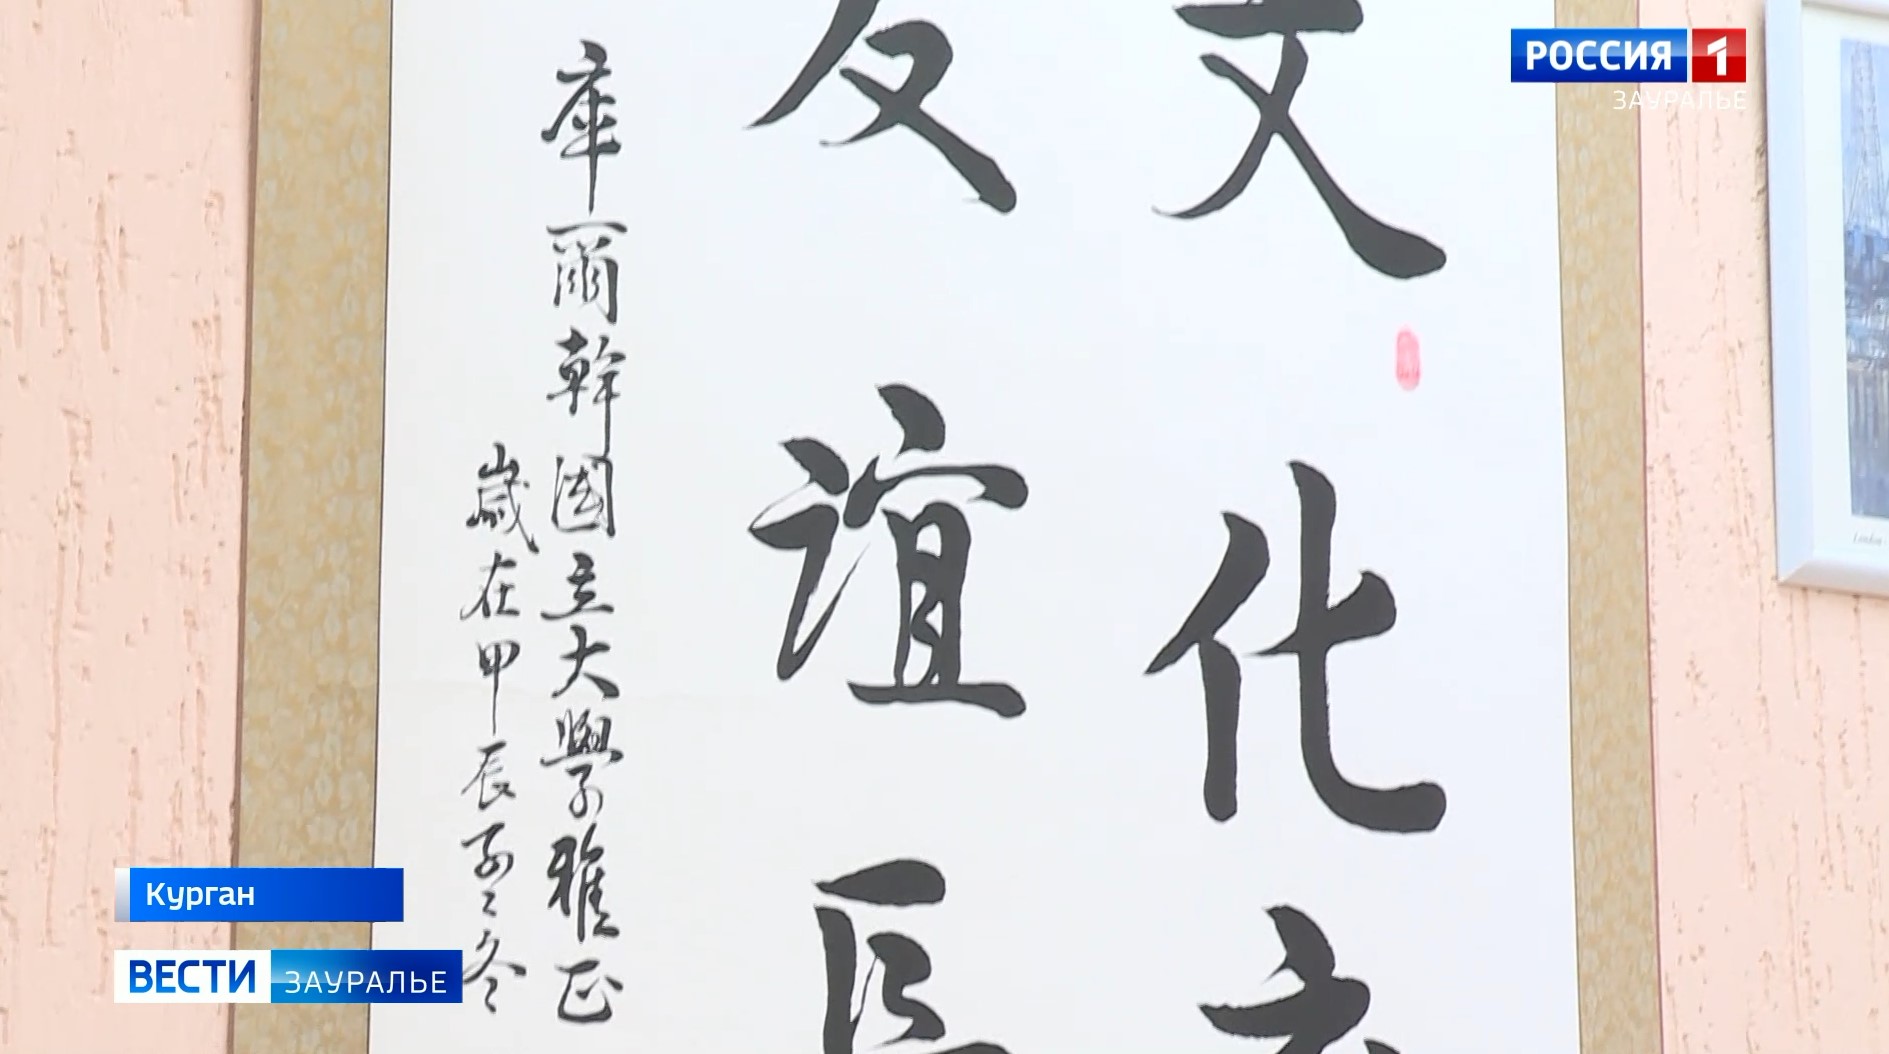 РОССИЯ 1
ЗАУРАЛЬЕ
文化交
友谊長
庫爾幹國立大學雅正
歲在甲辰孟冬
London
Курган
ВЕСТИ ЗАУРАЛЬЕ